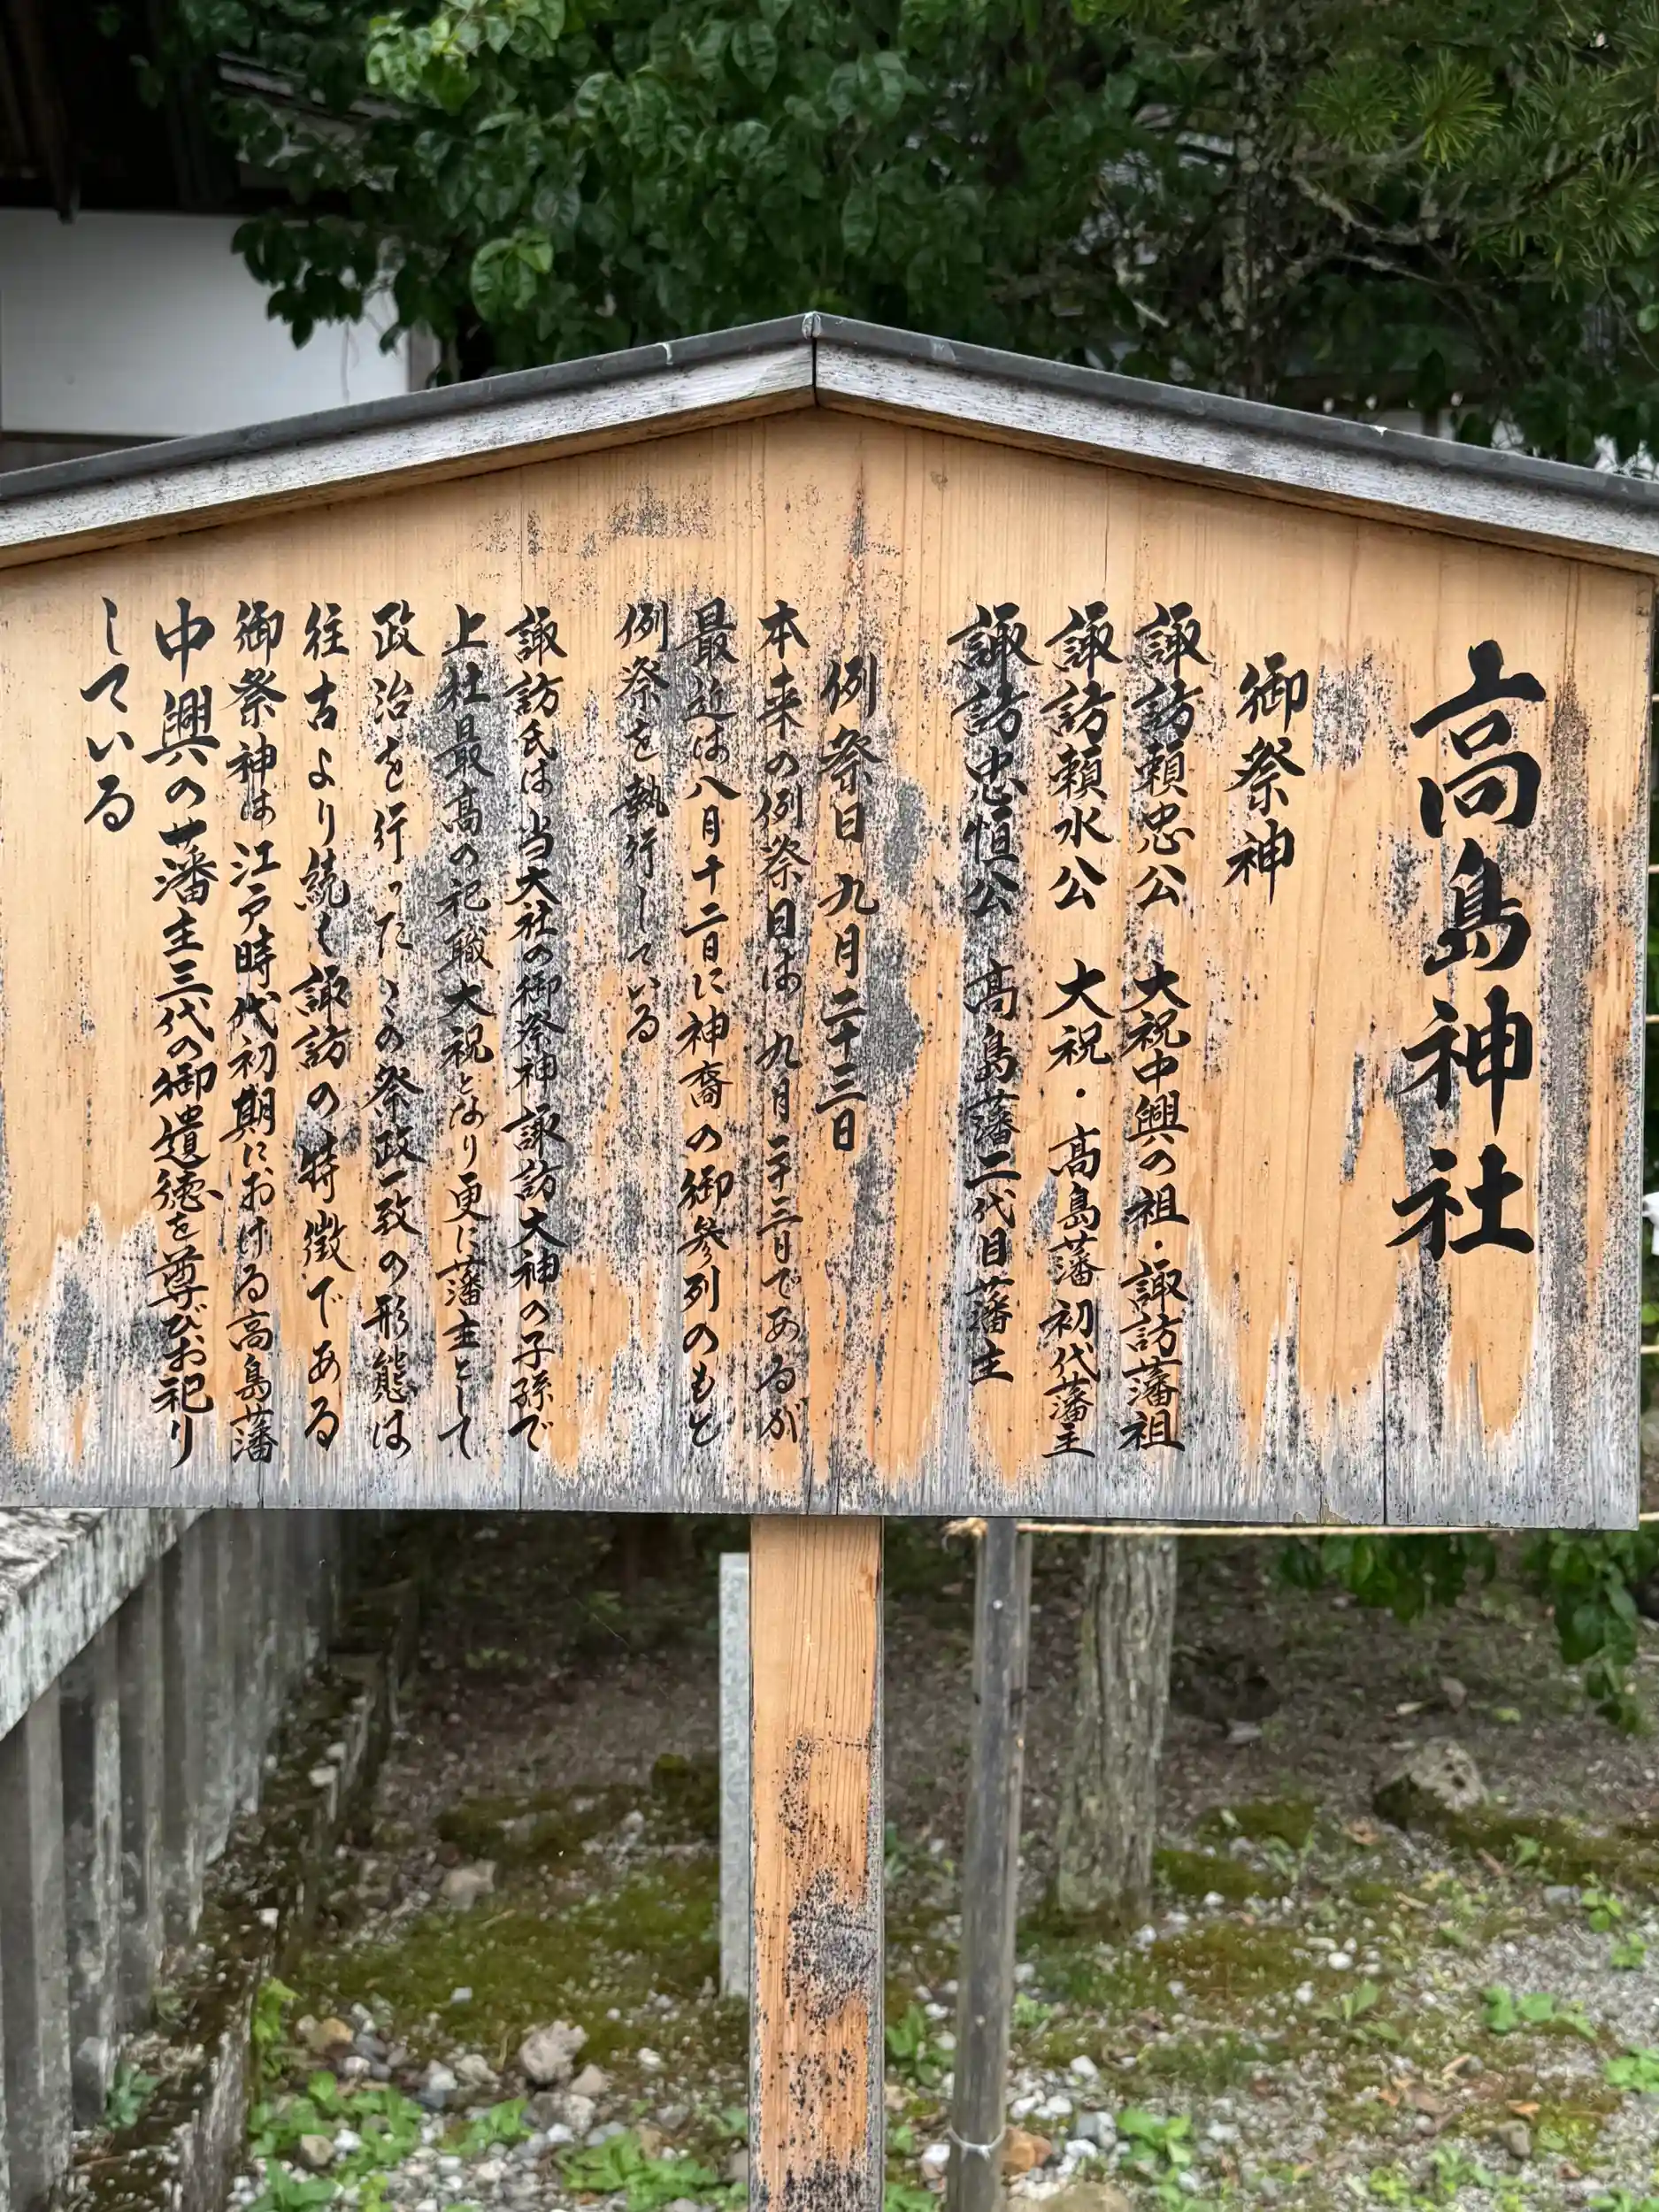 高島神社
御祭神
諏訪頼忠公 大祝中興の祖・諏訪藩祖
諏訪頼水公 大祝・高島藩初代藩主
諏訪忠恒公 高島藩二代目藩主
例祭日 九月二十三日
本来の例祭日は 九月二十三日であるが
最近は八月十二日に神裔の御参列のもと
例祭を執行している
諏訪氏は当大社の御祭神諏訪大神の子孫で
上社最高の祀職大祝となり更に藩主として
政治を行った この祭政一致の形態は
往古より続く諏訪の特徴である
御祭神は江戸時代初期における高島藩
中興の藩主三代の御遺徳を尊びお祀り
している